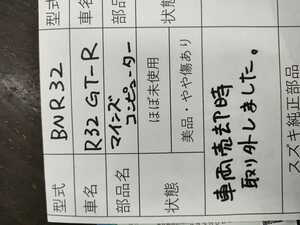 型式 BNR32 型式
車名 R32 GT-R 車名
部品名 マインズ コンピューター 部品
状態 ほぼ未使用 状態
美品・やや傷あり
車両売却時
取り外しました。
スズキ純正部品